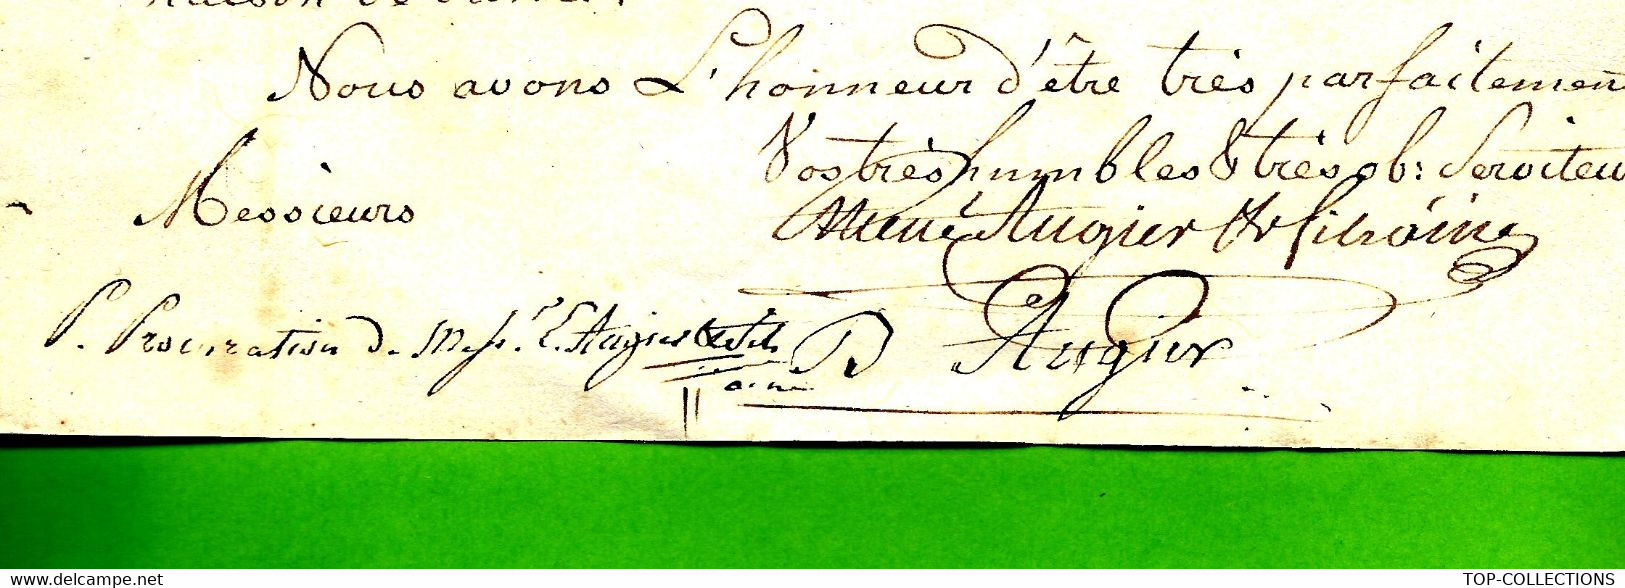 Nous avons L'honneur d'être très parfaitemen
Vos très humbles & très ob: Serviteu
Messieurs
Augier & fils aîné
P. Procuration D. Mess. E. Augier & fils
aîné
B Augier
www.delcampe.net
TOP-COLLECTIONS